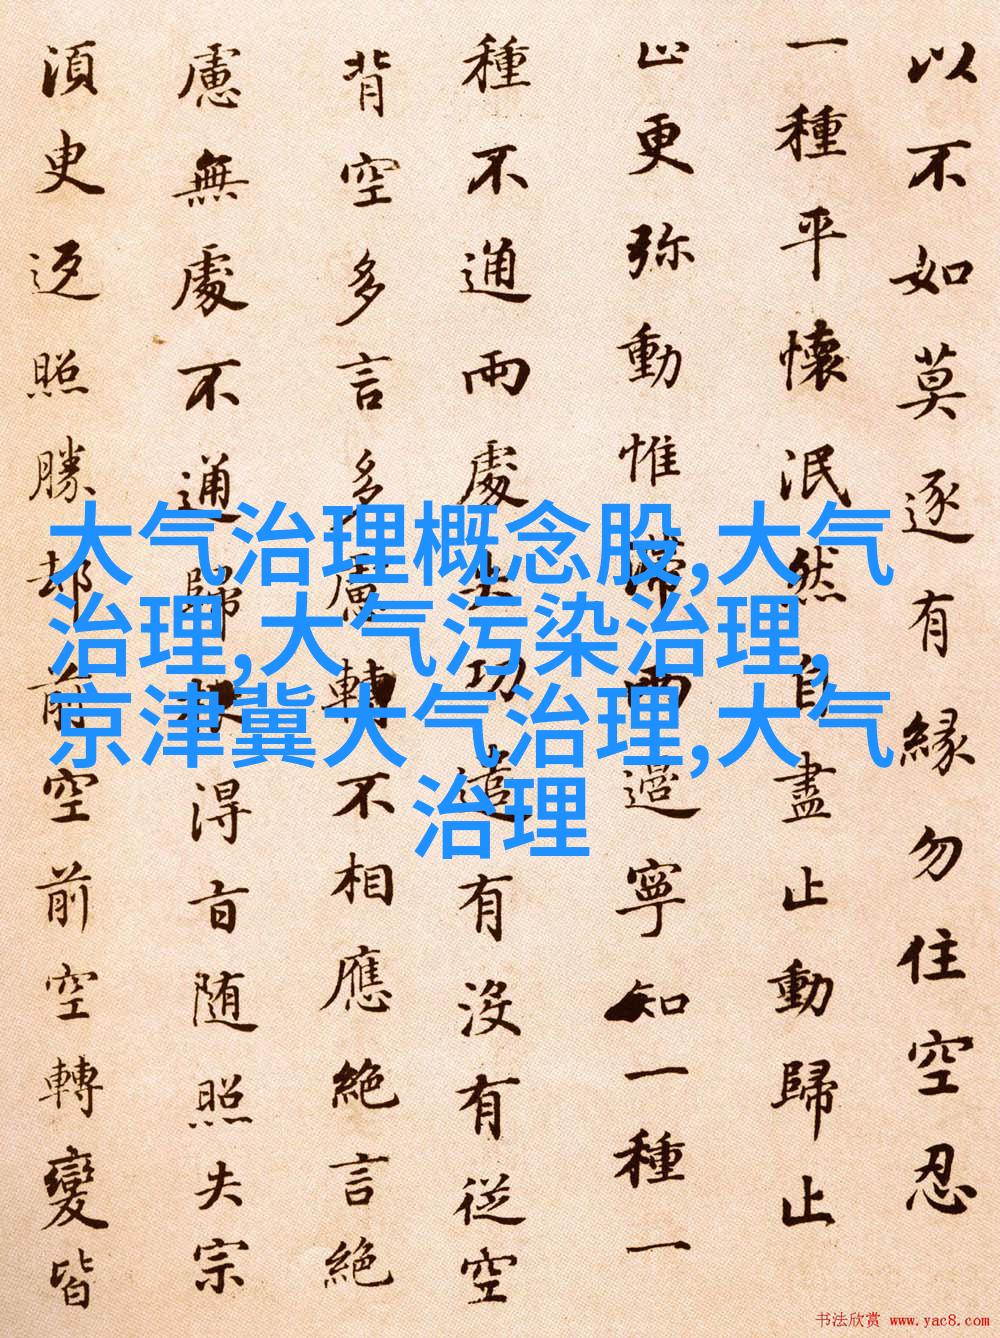 以不如莫逐有緣勿住空忍
一種平懷泯然自盡止動歸止
止更弥動惟滯兩邊寧知一種一
種不通兩處失功遣有沒有従空
背空多言多慮轉不相應絕言絕
慮無處不通歸根得旨随照失宗
須臾返照勝却前空前空轉變皆
大气治理概念股,大气
治理,大气污染治理,
京津冀大气治理,大气
治理
书法欣赏 www.yac8.com